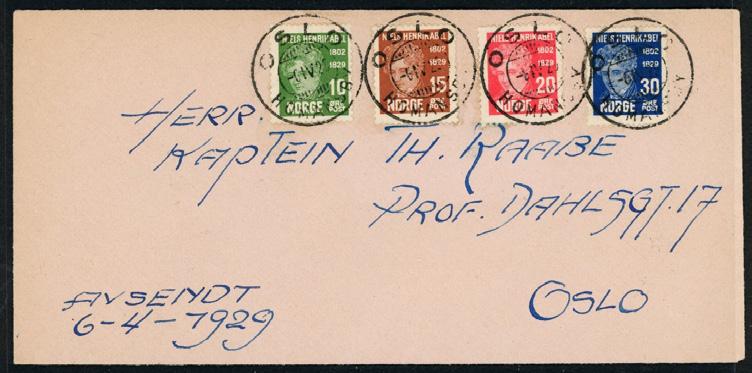 NIELS HENRIK ABEL
1802
1829
10
NORGE
ØRE
POST
NIELS HENRIK ABEL
1802
1829
15
NORGE
ØRE
POST
NIELS HENRIK ABEL
1802
1829
20
NORGE
ØRE
POST
NIELS HENRIK ABEL
1802
1829
30
NORGE
ØRE
POST
OSLO
OSLO
OSLO
HERR.
KAPTEIN TH. RAABE
PROF. DAHLSGT. 17
AVSENDT
6-4-1929
OSLO